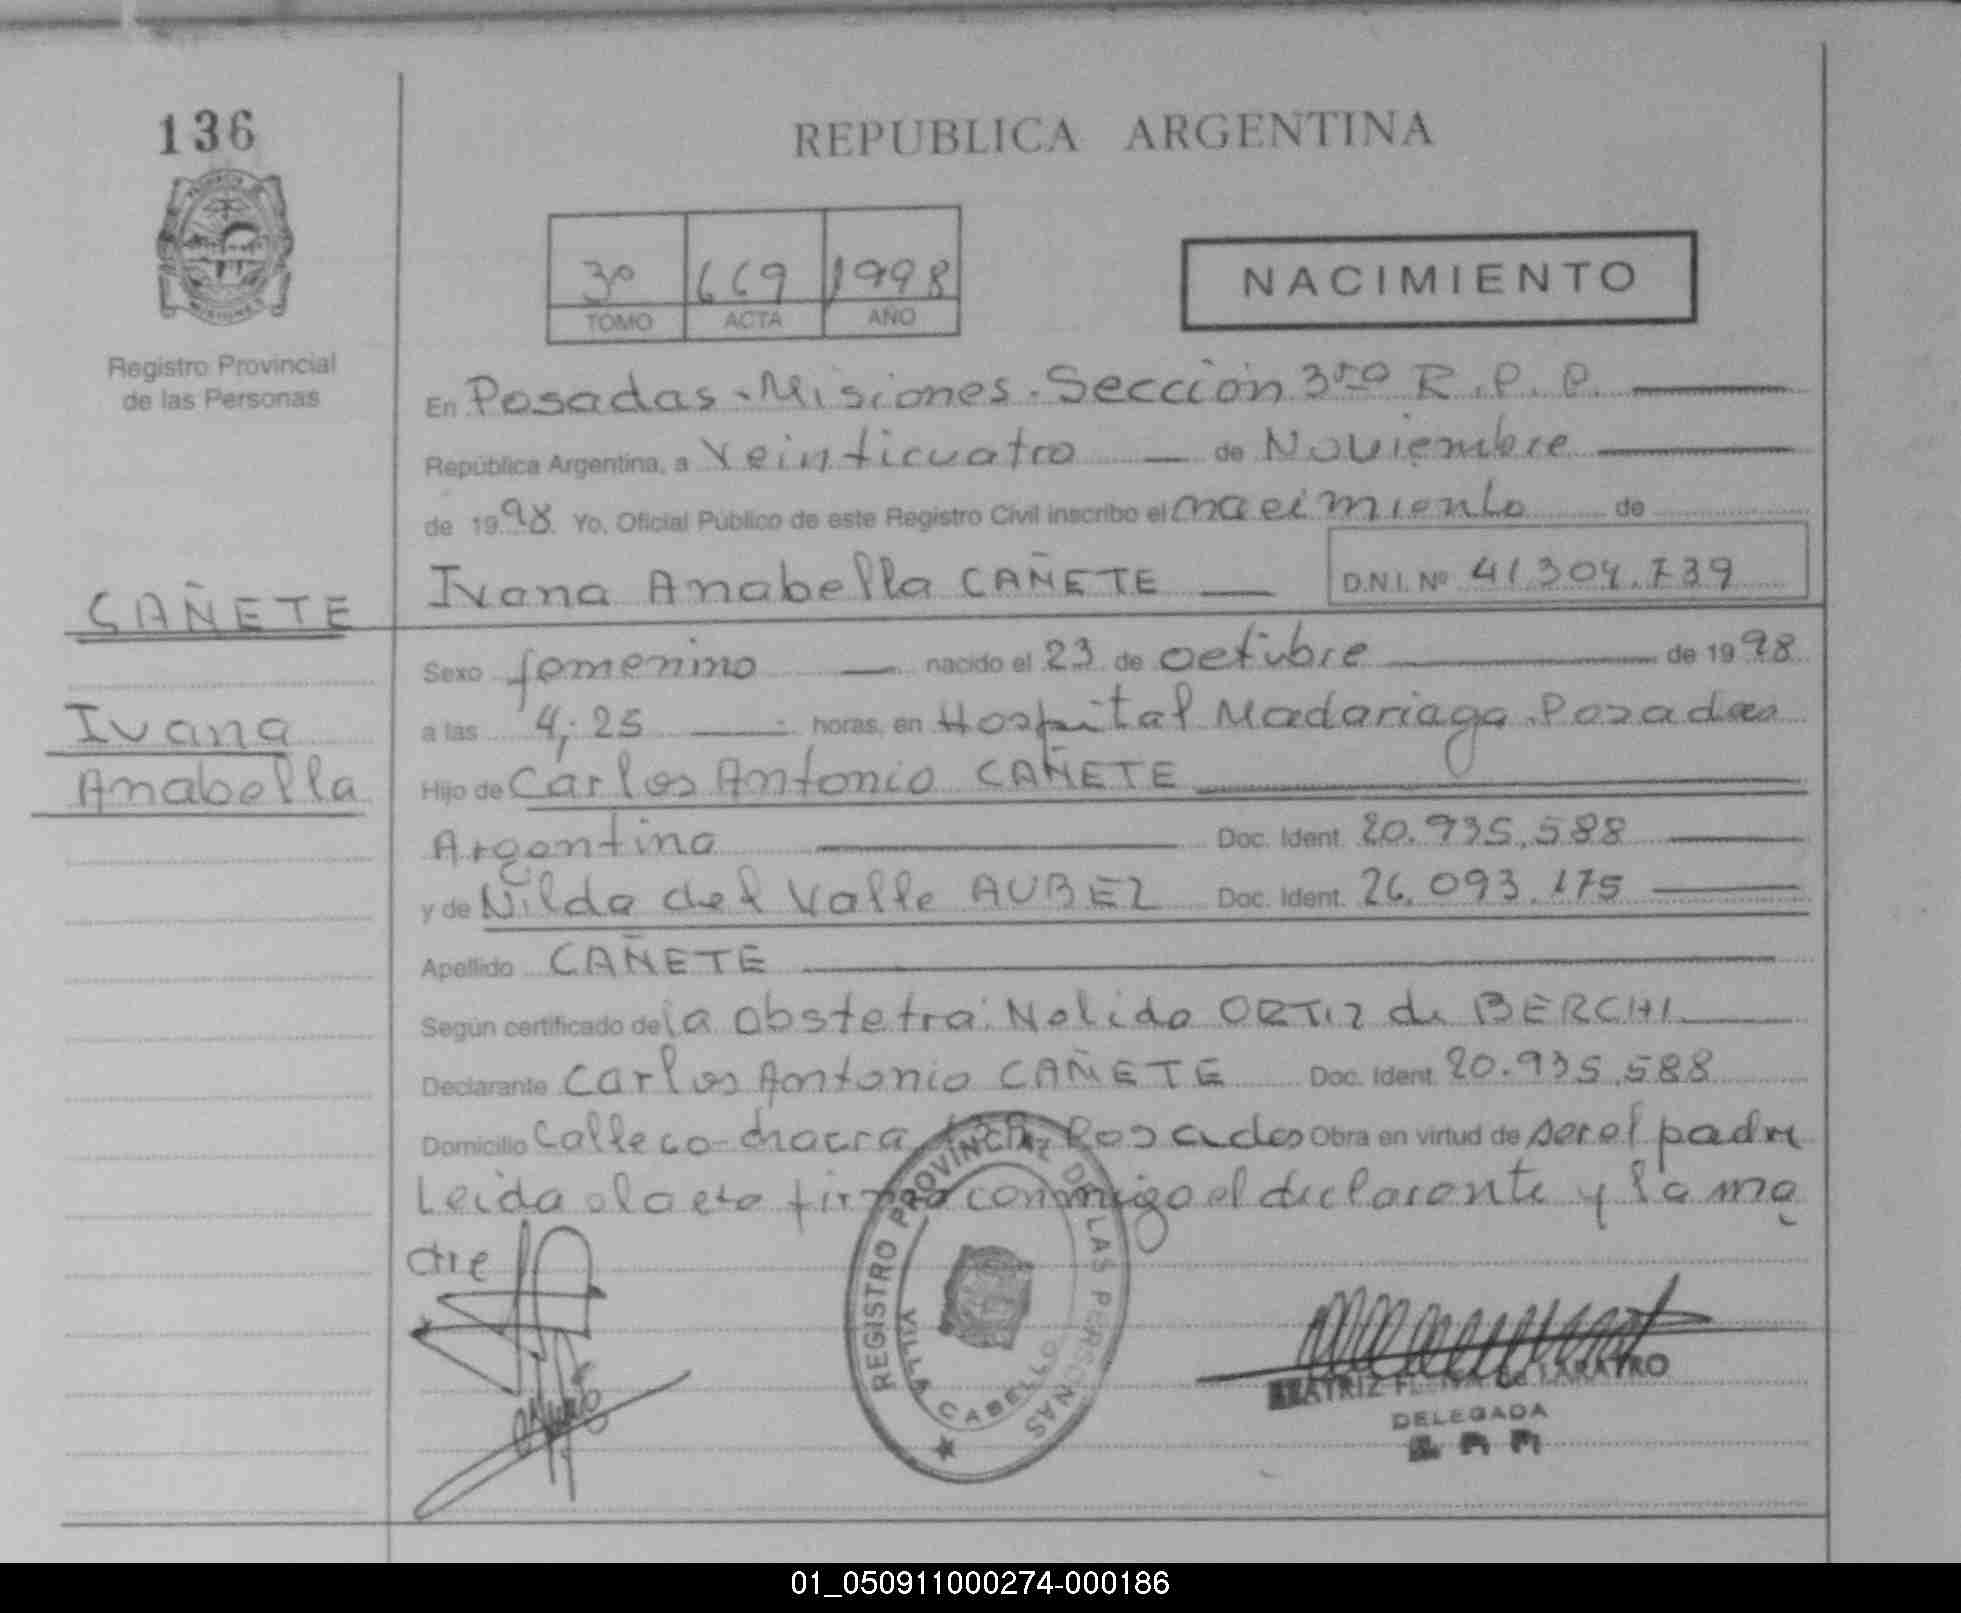 136
Registro Provincial
de las Personas
CAÑETE
Ivana
Anabella
REPUBLICA ARGENTINA
3º 669 1998
TOMO ACTA AÑO
NACIMIENTO
En Posadas - Misiones - Sección 3ra R.P.P.
República Argentina, a Veinticuatro de Noviembre
de 1998 Yo, Oficial Público de este Registro Civil inscribo el nacimiento de
Ivana Anabella CAÑETE D.N.I. Nº 41.304.739
Sexo femenino nacido el 23 de octubre de 1998
a las 4,25 horas, en Hospital Madariaga. Posadas
Hijo de Carlos Antonio CAÑETE
Argentina Doc. Ident. 20.935.588
y de Nilda del Valle AUBEZ Doc. Ident. 26.093.175
Apellido CAÑETE
Según certificado de la obstetra: Nelida ORTIZ de BERCHI
Declarante Carlos Antonio CAÑETE Doc. Ident. 20.935.588
Domicilio Calle co-chacra Posadas Obra en virtud de ser el padre
Leida el acta firma conmigo el declarante y la ma
dre
REGISTRO PROVINCIAL DE LAS PERSONAS
VILLA CABELLO
BEATRIZ de LARATRO
DELEGADA
01_050911000274-000186